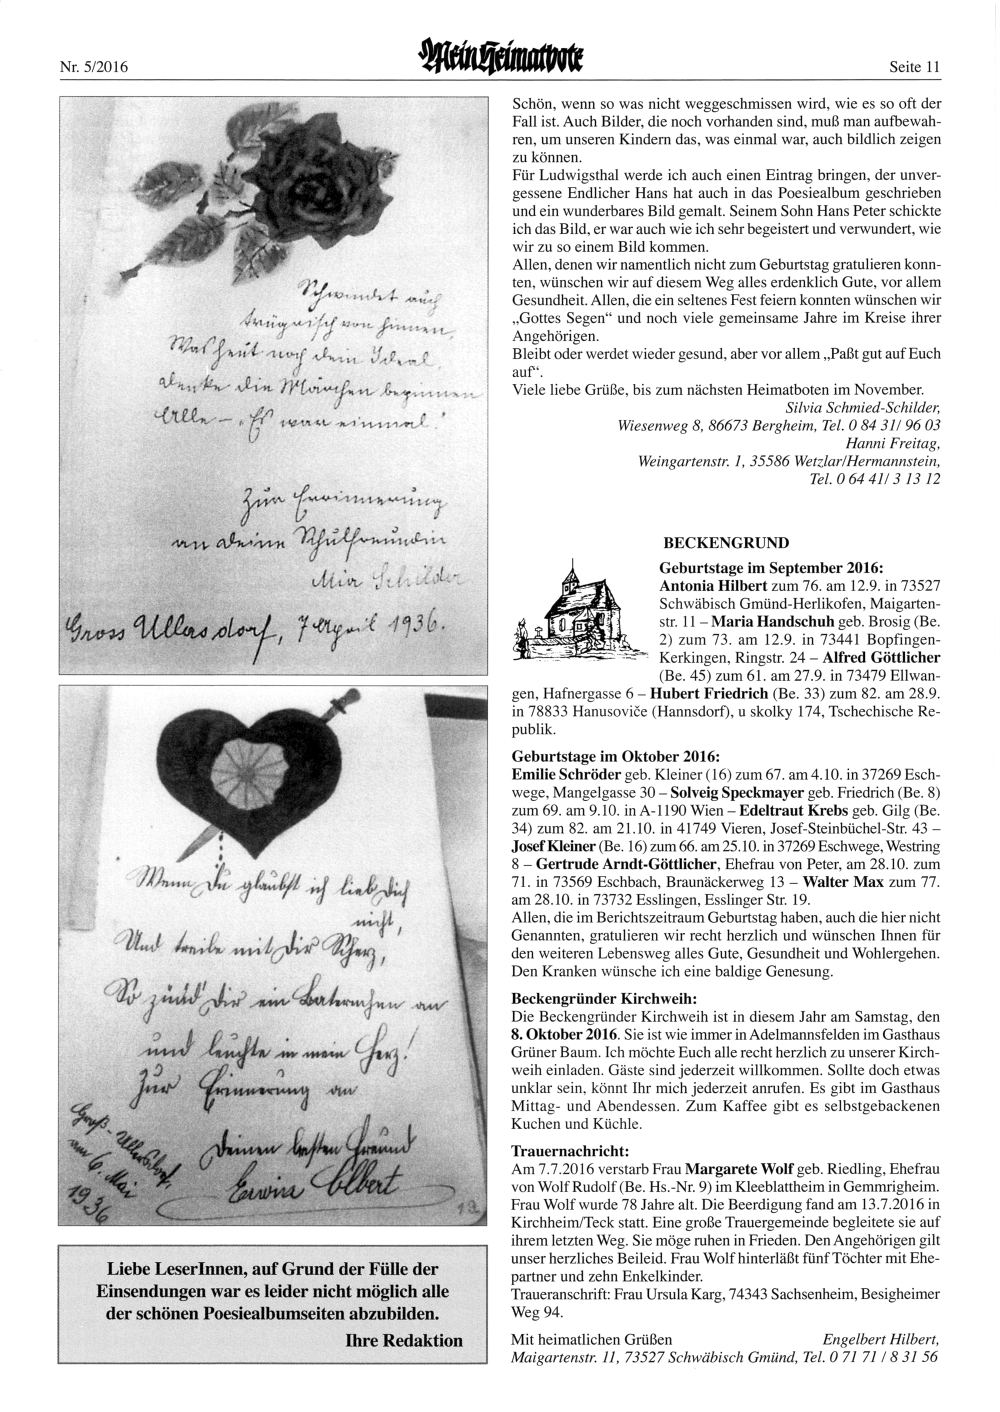 Nr. 5/2016
Mein Heimatbote
Seite 11
Schwindet auch
trügerisch von hinnen,
Was heut noch dein Ideal,
denke die Märchen beginnen
Alle – „Es war einmal."
Zur Erinnerung
an deine Schulfreundin
Mia Schilder
Gross Ullersdorf, 7 April 1936.
Wenn Du glaubst ich lieb Dich
nicht,
Und treibe mit Dir Scherz,
So zünd' Dir ein Laternchen an
und leuchte in mein Herz!
Zur Erinnerung an
Deinen besten Freund
Erwin Olbert
Groß-Ullersdorf,
am 6. Mai
1936
Liebe LeserInnen, auf Grund der Fülle der
Einsendungen war es leider nicht möglich alle
der schönen Poesiealbumseiten abzubilden.
Ihre Redaktion
Schön, wenn so was nicht weggeschmissen wird, wie es so oft der
Fall ist. Auch Bilder, die noch vorhanden sind, muß man aufbewah-
ren, um unseren Kindern das, was einmal war, auch bildlich zeigen
zu können.
Für Ludwigsthal werde ich auch einen Eintrag bringen, der unver-
gessene Endlicher Hans hat auch in das Poesiealbum geschrieben
und ein wunderbares Bild gemalt. Seinem Sohn Hans Peter schickte
ich das Bild, er war auch wie ich sehr begeistert und verwundert, wie
wir zu so einem Bild kommen.
Allen, denen wir namentlich nicht zum Geburtstag gratulieren konn-
ten, wünschen wir auf diesem Weg alles erdenklich Gute, vor allem
Gesundheit. Allen, die ein seltenes Fest feiern konnten wünschen wir
„Gottes Segen" und noch viele gemeinsame Jahre im Kreise ihrer
Angehörigen.
Bleibt oder werdet wieder gesund, aber vor allem „Paßt gut auf Euch
auf".
Viele liebe Grüße, bis zum nächsten Heimatboten im November.
Silvia Schmied-Schilder,
Wiesenweg 8, 86673 Bergheim, Tel. 0 84 31/ 96 03
Hanni Freitag,
Weingartenstr. 1, 35586 Wetzlar/Hermannstein,
Tel. 0 64 41/ 3 13 12
BECKENGRUND
Geburtstage im September 2016:
Antonia Hilbert zum 76. am 12.9. in 73527
Schwäbisch Gmünd-Herlikofen, Maigarten-
str. 11 – Maria Handschuh geb. Brosig (Be.
2) zum 73. am 12.9. in 73441 Bopfingen-
Kerkingen, Ringstr. 24 – Alfred Göttlicher
(Be. 45) zum 61. am 27.9. in 73479 Ellwan-
gen, Hafnergasse 6 – Hubert Friedrich (Be. 33) zum 82. am 28.9.
in 78833 Hanusoviče (Hannsdorf), u skolky 174, Tschechische Re-
publik.
Geburtstage im Oktober 2016:
Emilie Schröder geb. Kleiner (16) zum 67. am 4.10. in 37269 Esch-
wege, Mangelgasse 30 – Solveig Speckmayer geb. Friedrich (Be. 8)
zum 69. am 9.10. in A-1190 Wien – Edeltraut Krebs geb. Gilg (Be.
34) zum 82. am 21.10. in 41749 Vieren, Josef-Steinbüchel-Str. 43 –
Josef Kleiner (Be. 16) zum 66. am 25.10. in 37269 Eschwege, Westring
8 – Gertrude Arndt-Göttlicher, Ehefrau von Peter, am 28.10. zum
71. in 73569 Eschbach, Braunäckerweg 13 – Walter Max zum 77.
am 28.10. in 73732 Esslingen, Esslinger Str. 19.
Allen, die im Berichtszeitraum Geburtstag haben, auch die hier nicht
Genannten, gratulieren wir recht herzlich und wünschen Ihnen für
den weiteren Lebensweg alles Gute, Gesundheit und Wohlergehen.
Den Kranken wünsche ich eine baldige Genesung.
Beckengründer Kirchweih:
Die Beckengründer Kirchweih ist in diesem Jahr am Samstag, den
8. Oktober 2016. Sie ist wie immer in Adelmannsfelden im Gasthaus
Grüner Baum. Ich möchte Euch alle recht herzlich zu unserer Kirch-
weih einladen. Gäste sind jederzeit willkommen. Sollte doch etwas
unklar sein, könnt Ihr mich jederzeit anrufen. Es gibt im Gasthaus
Mittag- und Abendessen. Zum Kaffee gibt es selbstgebackenen
Kuchen und Küchle.
Trauernachricht:
Am 7.7.2016 verstarb Frau Margarete Wolf geb. Riedling, Ehefrau
von Wolf Rudolf (Be. Hs.-Nr. 9) im Kleeblattheim in Gemmrigheim.
Frau Wolf wurde 78 Jahre alt. Die Beerdigung fand am 13.7.2016 in
Kirchheim/Teck statt. Eine große Trauergemeinde begleitete sie auf
ihrem letzten Weg. Sie möge ruhen in Frieden. Den Angehörigen gilt
unser herzliches Beileid. Frau Wolf hinterläßt fünf Töchter mit Ehe-
partner und zehn Enkelkinder.
Traueranschrift: Frau Ursula Karg, 74343 Sachsenheim, Besigheimer
Weg 94.
Mit heimatlichen Grüßen Engelbert Hilbert,
Maigartenstr. 11, 73527 Schwäbisch Gmünd, Tel. 0 71 71 / 8 31 56